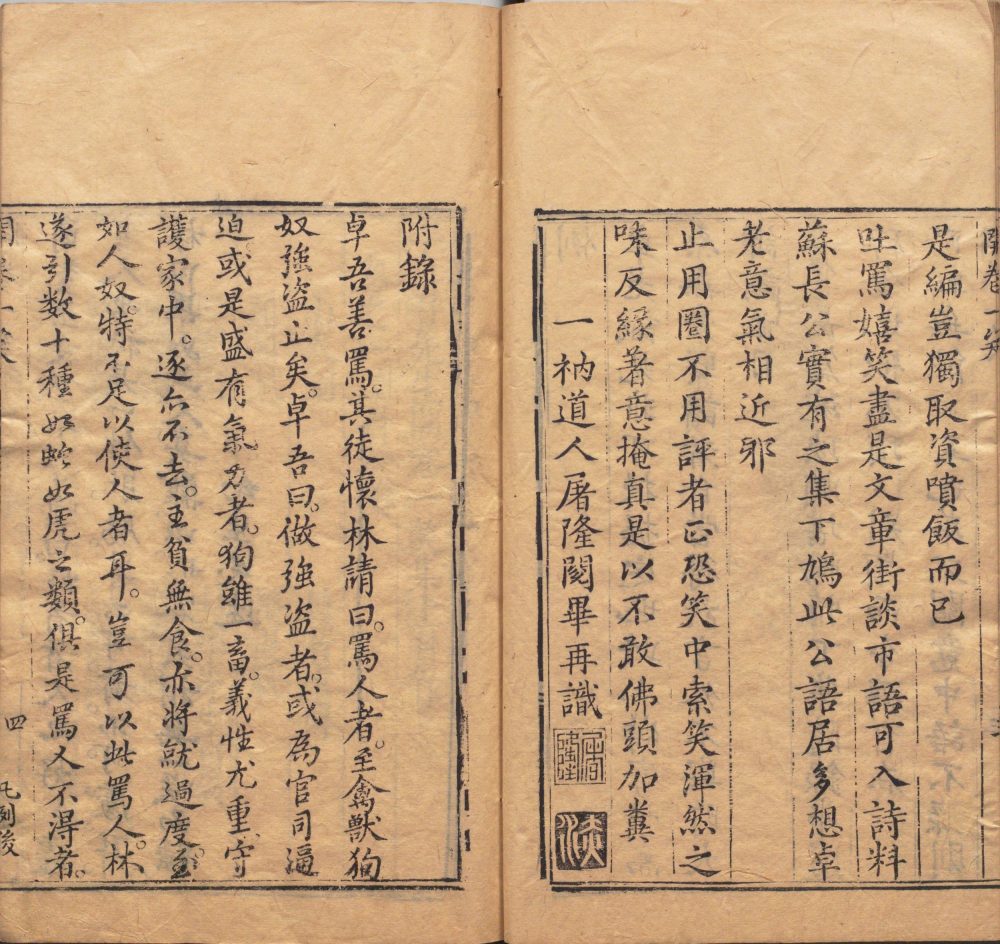 開卷一笑
是編豈獨取資噴飯而已
吐罵嬉笑盡是文章街談市語可入詩料
蘇長公實有之集下鳩此公語居多想卓
老意氣相近邪
止用圈不用評者正恐笑中索笑渾然之
味反緣著意掩真是以不敢佛頭加糞
一衲道人屠隆閱畢再識
屠隆
附錄
卓吾善罵。其徒懷林請曰。罵人者。至禽獸狗
奴強盜止矣。卓吾曰。做強盜者。或為官司逼
迫或是盛有氣力者。狗雖一畜。義性尤重、守
護家中。逐亦不去。主貧無食。亦將就過度。至
如人奴。特不足以使人者耳。豈可以此罵人。林
遂引数十種如蛇如虎之類。俱是罵人不得者。
開卷一笑
四
凡例後